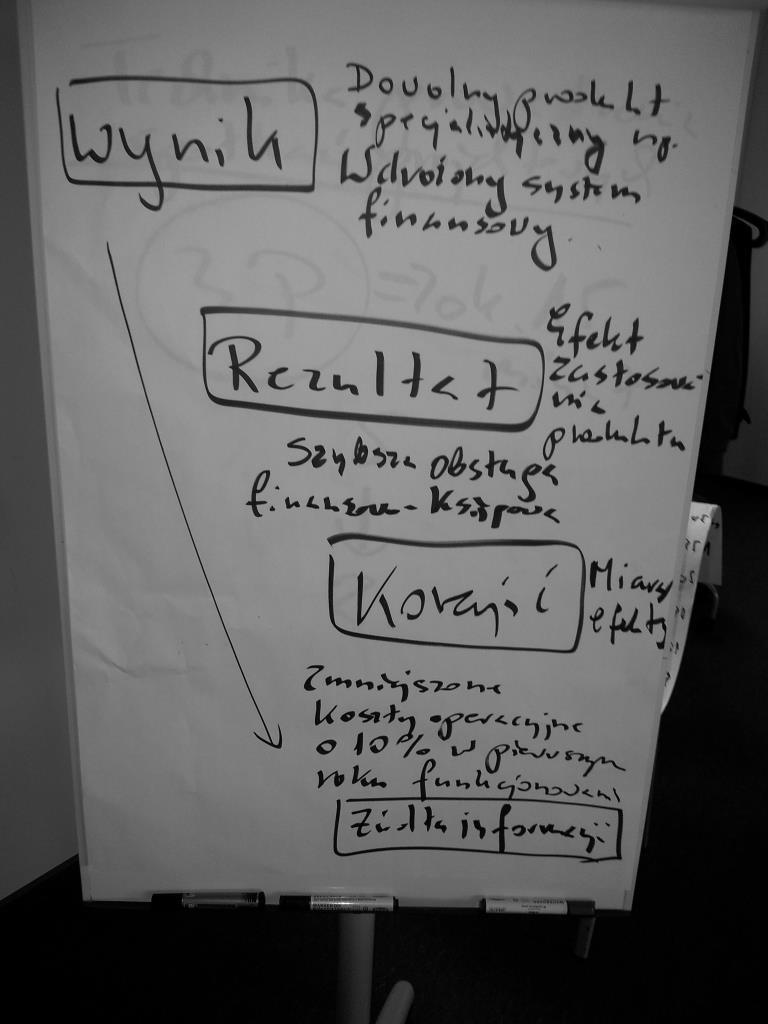 Wynik
Dowolny produkt
specjalistyczny np.
Wdrożony system
finansowy
Rezultat
Efekt
zastosowa-
nia
produktu
Szybsza obsługa
finansowo-księgowa
Korzyści
Miary
efekty
Zmniejszone
koszty operacyjne
o 10% w pierwszym
roku funkcjonowani
Źródła informacji